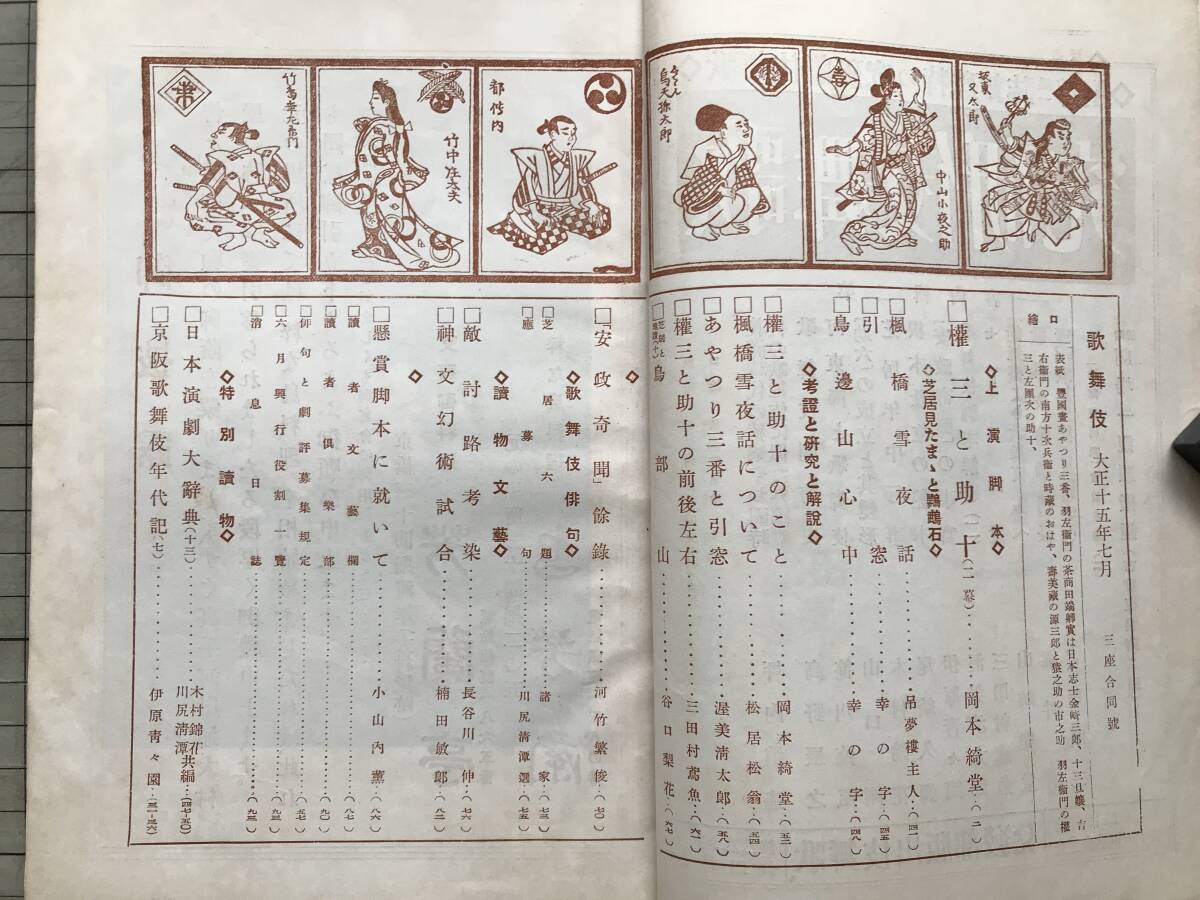 坂東又太郎
中山小夜之助
烏天弥太郎
都伝内
竹中庄太夫
歌舞伎 大正十五年七月 三座合同號
口繪
表紙 豐國畫あやつり三番、羽左衞門の茶商田端鄉實は日本志士金崎三郎、十三旦孃、吉
右衞門の南方十次兵衞と時藏のおはや、壽美藏の源三郎と猿之助の市之助 羽左衞門の權
三と左團次の助十、
◇上演脚本◇
□權三と助十(二幕)岡本綺堂(二)
◇芝居見たまゝと鸚鵡石◇
□楓橋雪夜話 吊夢樓主人(四一)
□引窓 幸の字(四五)
□鳥邊山心中 幸の字(四八)
◇考證と研究と解說◇
□權三と助十のこと 岡本綺堂(五三)
□楓橋雪夜話について 松居松翁(五四)
□あやつり三番と引窓 渥美淸太郎(五八)
□權三と助十の前後左右 三田村鳶魚(六一)
□鳥部山 谷口梨花(六七)
□「安政奇聞」餘錄 河竹繁俊(七〇)
◇歌舞伎俳句◇
□芝居六題 諸家(七三)
□應募句 川尻淸潭選(七五)
◇讀物文藝◇
□敵討路考染 長谷川伸(七六)
□神文幻術試合 楠田敏郎(八二)
□懸賞脚本に就いて 小山內薰(八六)
□讀者文藝欄(八七)
□讀者俱樂部(九〇)
□俳句と劇評募集規定(五七)
□六月興行役割一覽(九二)
□消息日誌(九三)
◇特別讀物◇
□日本演劇大辭典(十三) 木村錦花 川尻淸潭 共編(四七-五〇)
□京阪歌舞伎年代記(七) 伊原靑々園(三一-三六)